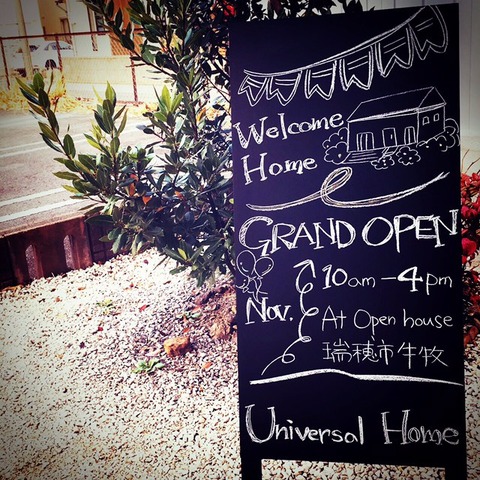 Welcome
Home
GRAND OPEN
10am-4pm
Nov.
At Open house
瑞穂市牛牧
Universal Home